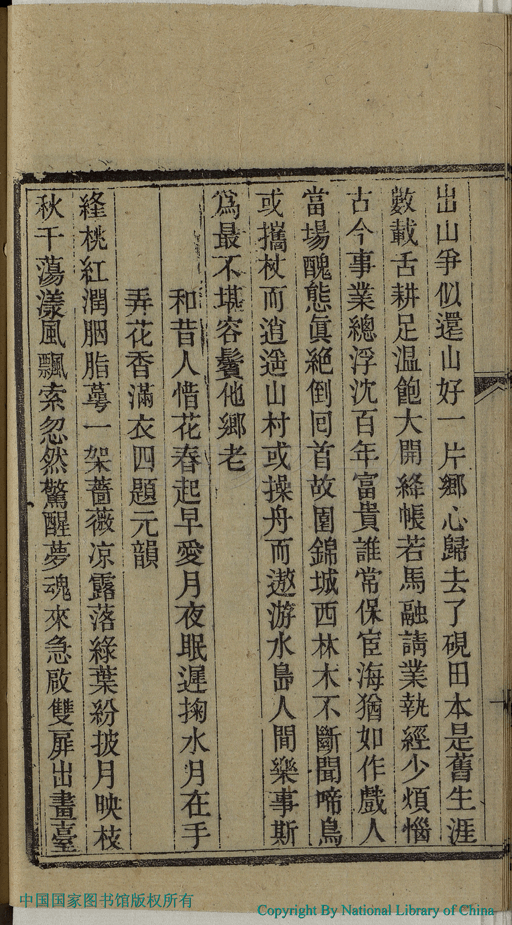 出山爭似還山好一片鄉心歸去了硯田本是舊生涯
數載舌耕足温飽大開絳帳若馬融請業執經少煩惱
古今事業總浮沈百年富貴誰常保宦海猶如作戲人
當場醜態眞絕倒回首故園錦城西林木不斷聞啼鳥
或攜杖而逍遥山村或操舟而遨游水島人間樂事斯
爲最不堪容鬢他鄉老
和昔人惜花春起早愛月夜眠遲掬水月在手
弄花香滿衣四題元韻
絳桃紅潤胭脂蕚一架薔薇凉露落綠葉紛披月映枝
秋千蕩漾風飄索忽然驚醒夢魂來急啟雙扉出畫臺
中国国家图书馆版权所有
Copyright By National Library of China